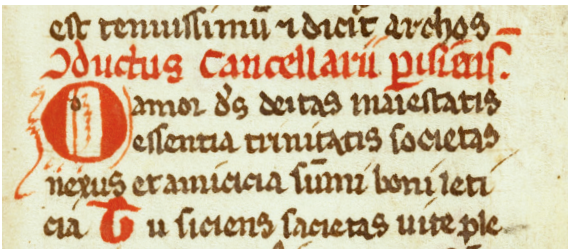 est tenuissimū ⁊ dicit̄ archos
Ɔductus Cancellarii ꝑisiēsis.
O amor d̄s deitas maiestatis
essentia trinitatis societas
nexus et amicicia sūmi boni leti
cia Tu siciens sacietas uite ple